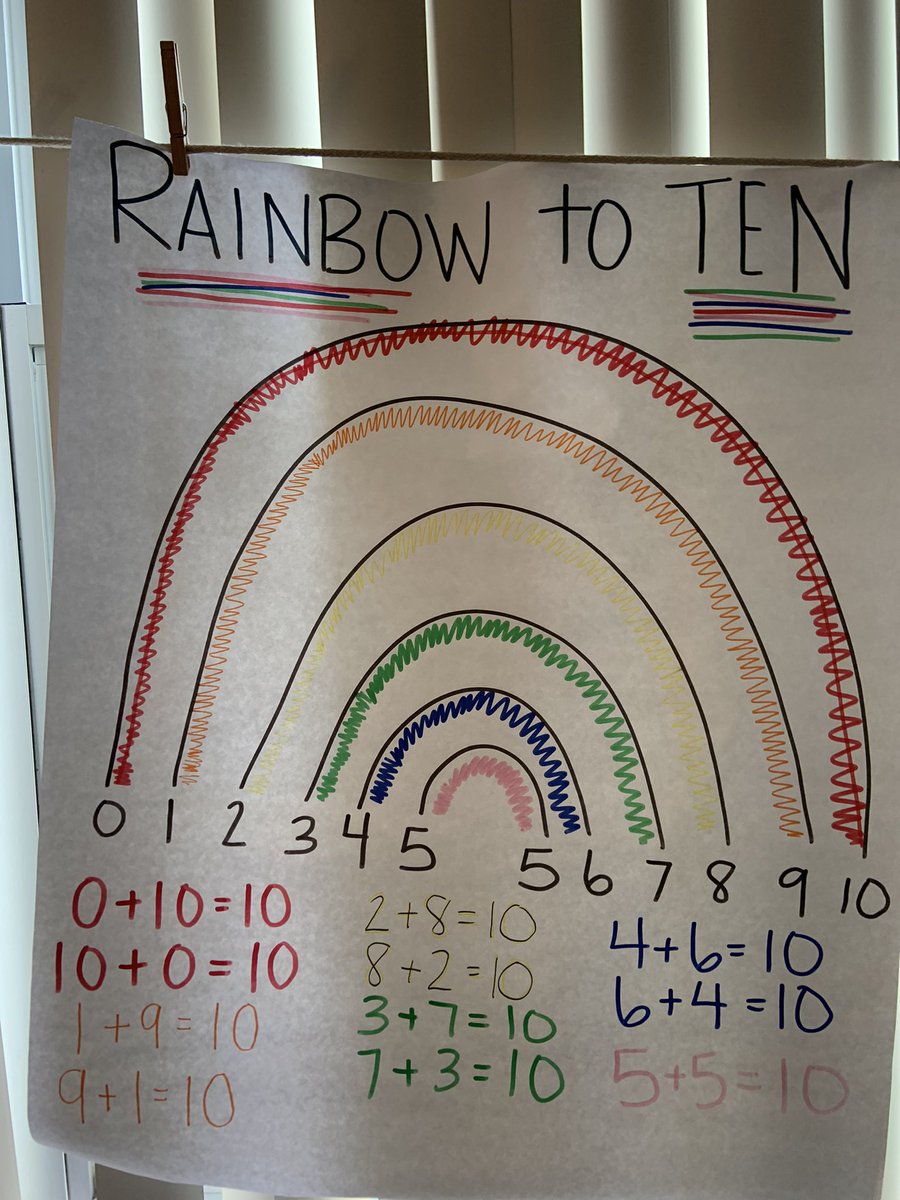 RAINBOW to TEN
0 1 2 3 4 5 5 6 7 8 9 10
0+10=10
10+0=10
1+9=10
9+1=10
2+8=10
8+2=10
3+7=10
7+3=10
4+6=10
6+4=10
5+5=10